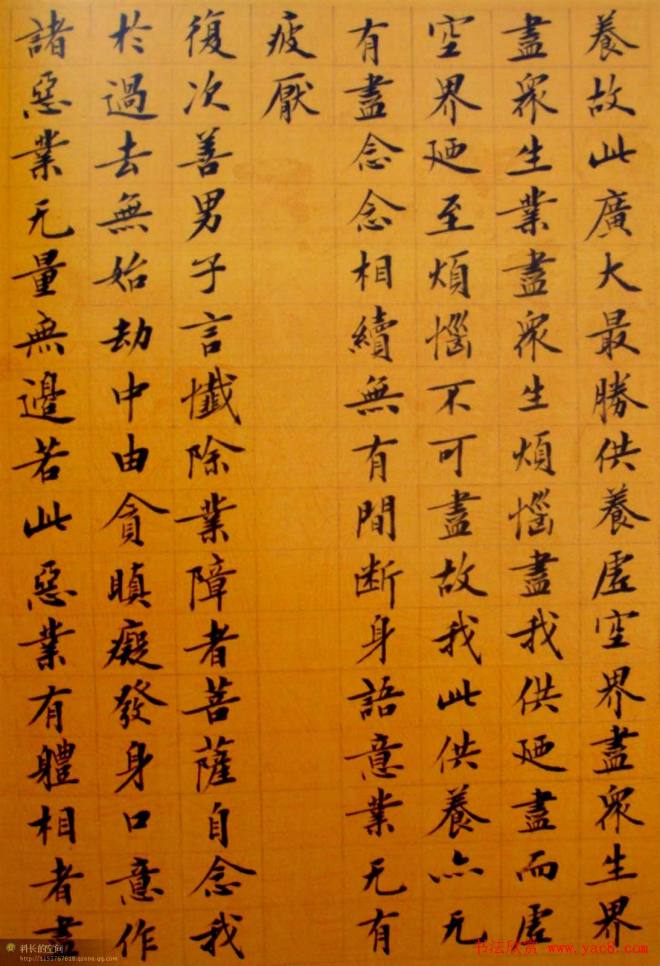 養故此廣大最勝供養虛空界盡眾生界
盡眾生業盡眾生煩惱盡我供廼盡而虛
空界廼至煩惱不可盡故我此供養亦无
有盡念念相續無有間断身語意業无有
疲厭
復次善男子言懺除業障者菩薩自念我
於過去無始劫中由貪瞋癡發身口意作
諸惡業无量無邊若此惡業有體相者盡
科长的空间
书法欣赏 www.yac8.com